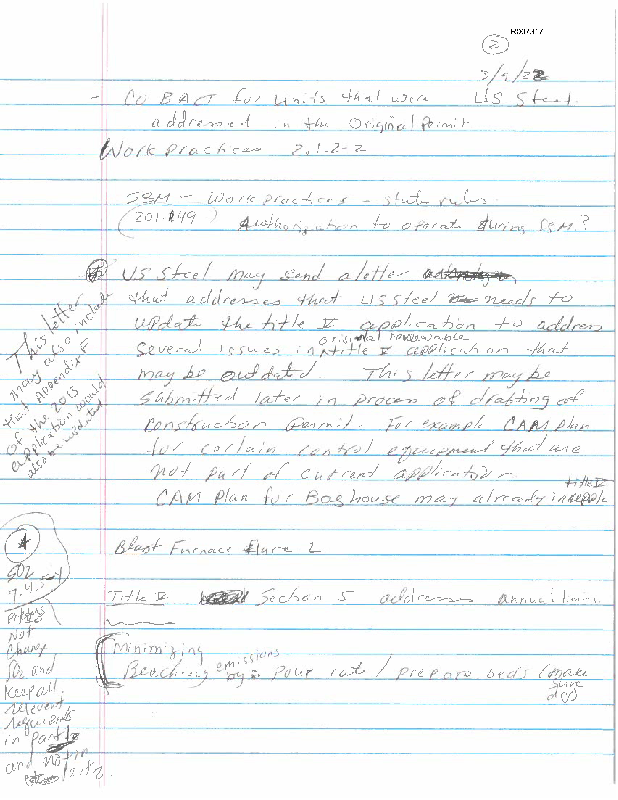 R007317
2
3/9/22
- CO BACT for units that were US Steel
addressed in the Original Permit
Work Practices 201-2-2
SSM - Work practices - state rules
(201.149) Authorization to operate during SSM?
US Steel may send a letter
that addresses that US Steel needs to
update the title V application to address
original renewable
several issues in title V application that
may be outdated This letter may be
submitted later in process of drafting of
Construction Permit. For example CAM plan
for certain control equipment that are
not part of current application
title V
CAM Plan for Baghouse may already in
This letter
may also include
that Appendix F
of the 2015
application would
also be updated
Blast Furnace Flare 2
Title V Section 5 addresses annual
Minimizing
Beaching emissions by pour rate / prepare beds (make
sure
dry)
SO2
7.4.
Not
Change
SO2 and
keep all
relevant
requirements
in part
and not in